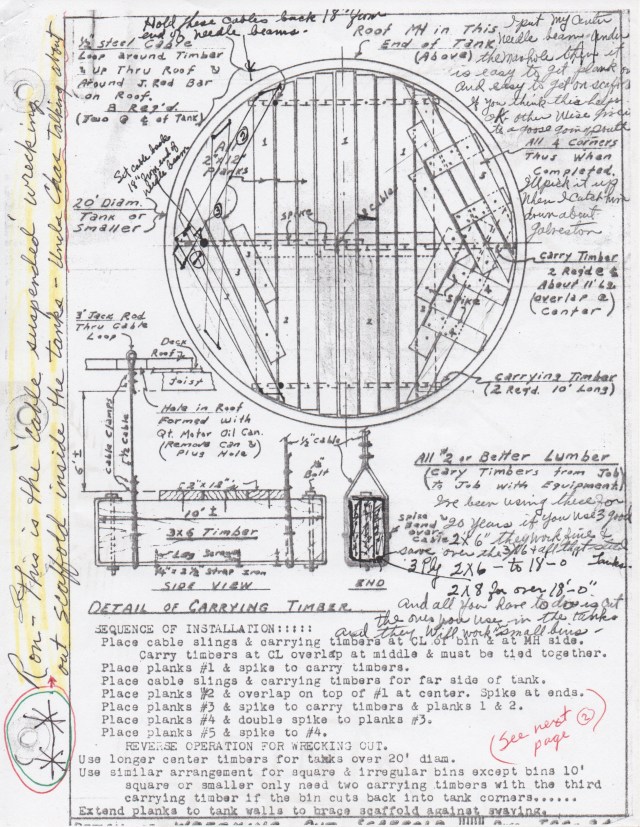 Hold these cables back 18" from
end of needle beams.
1/2" Steel Cable
Loop around Timber
& Up Thru Roof &
Around J. Rod Bar
on Roof.
8 Req'd.
(Two @ ¢ of Tank)
Roof MH in This
End of Tank
(Above)
I put My Center
Needle beam under
the manhole then it
is easy to get plank on
and easy to get on scaffold
if you think this helps
OK other wise goose
to a goose going south
I'll pick it up
when I catch him
down about
Galveston
All 4 Corners
Thus When
Completed.
All
2"x12"
Planks
Set cable back
18" from end of
needle beams
20' Diam.
Tank or
Smaller
spike
¢ Cable
spike
Carry Timber
2 Reqd @ ¢
About 11' Lg
(overlap @
Center)
Carrying Timber
(2 Reqd. 10' Long)
3' Jack Rod
Thru Cable
Loop
Deck
Roof
Joist
Hole in Roof
Formed with
Qt. Motor Oil Can.
(Remove Can &
Plug Hole)
Cable Clamps
1/2 Cable
6' ±
1/2" Cable
Bolt
2"x12"s
10' ±
3x6 Timber
Lag Screws
1/4" x 2 1/2 Strap Iron
SIDE VIEW
END
Spike
Band
over
Cable
All #2 or Better Lumber
(Cary Timbers from Job
To Job with Equipment)
I've been using these for
20 years if you use 3 good
2x6" they work fine &
save over the 3x6 + all that
3 Ply 2x6 - to 18'-0 Tanks-
2x8 for over 18'-0"
And all you have to do is cut
the ones you use in the tanks
and they will work small bins-
DETAIL OF CARRYING TIMBER
SEQUENCE OF INSTALLATION:::::
Place cable slings & carrying timbers at CL of bin & at MH side.
Carry timbers at CL overlap at middle & must be tied together.
Place planks #1 & spike to carry timbers.
Place cable slings & carrying timbers for far side of tank.
Place planks #2 & overlap on top of #1 at center. Spike at ends.
Place planks #3 & spike to carry timbers & planks 1 & 2.
Place planks #4 & double spike to planks #3.
Place planks #5 & spike to #4.
(See next
page ②)
REVERSE OPERATION FOR WRECKING OUT.
Use longer center timbers for tanks over 20' diam.
Use similar arrangement for square & irregular bins except bins 10'
square or smaller only need two carrying timbers with the third
carrying timber if the bin cuts back into tank corners......
Extend planks to tank walls to brace scaffold against swaying.
** Ron- This is the 'cable suspended' wrecking
out scaffold inside the tanks - Uncle Chas talking about